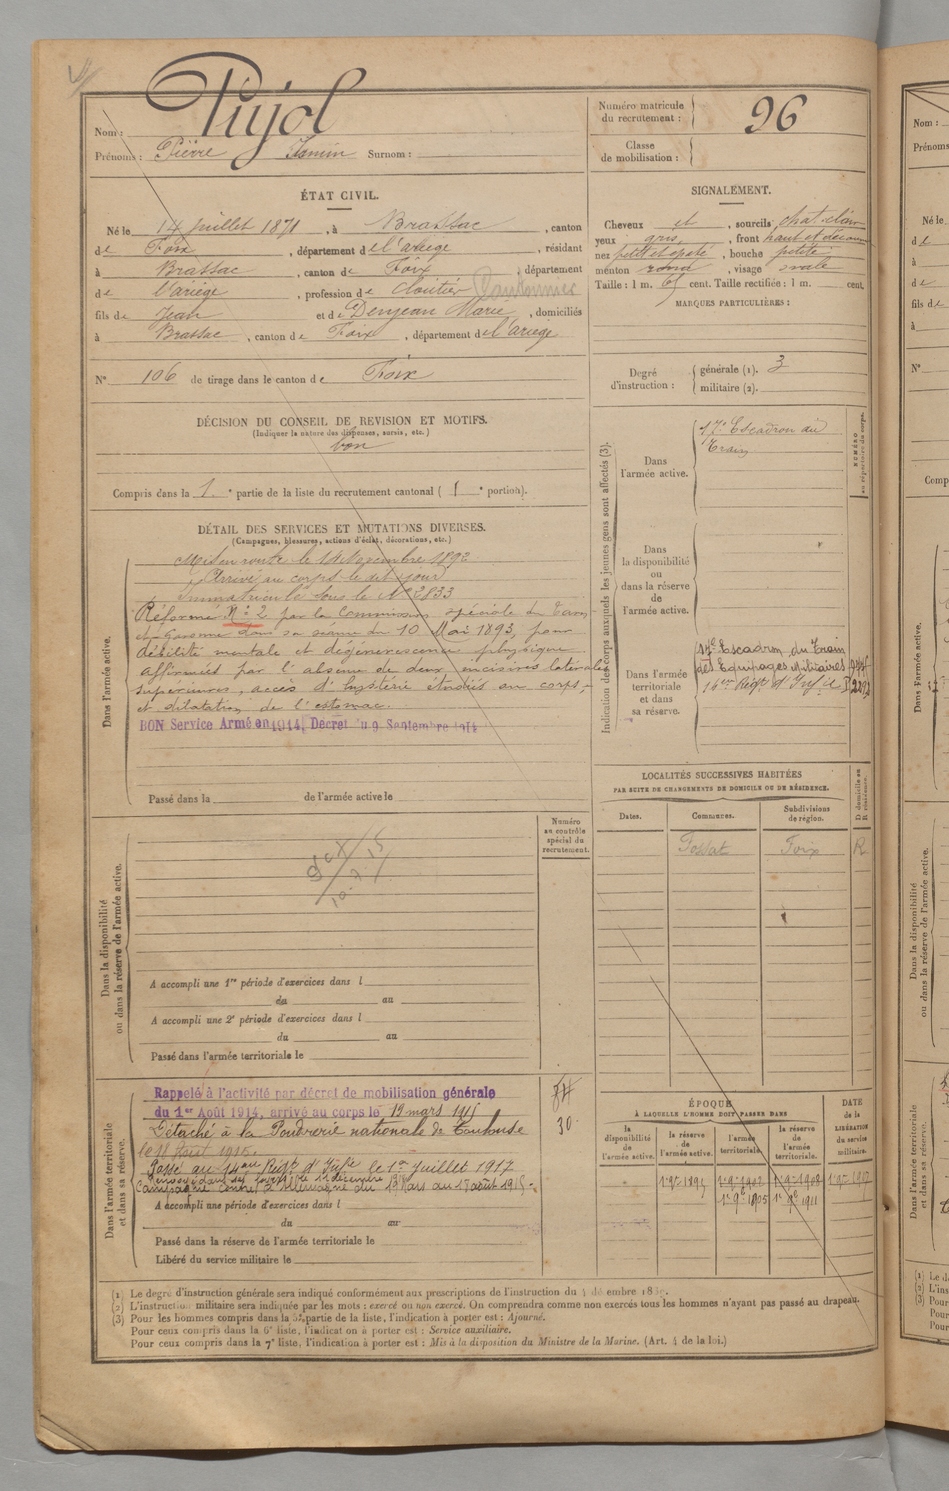 Pujol
Nom :
Prénoms : Pierre Surnom :
ÉTAT CIVIL.
Né le 14 juillet 1871, à Brassac, canton
de Foix, département de l'ariège, résidant
à Brassac, canton de Foix, département
de l'ariège, profession de cloutier
fils de Jean et de Denjean Marie, domiciliés
à Brassac, canton de Foix, département de l'ariège
N° 106 de tirage dans le canton de Foix
DÉCISION DU CONSEIL DE REVISION ET MOTIFS.
(Indiquer la nature des dispenses, sursis, etc.)
bon
Compris dans la 1e partie de la liste du recrutement cantonal ( 1e portion).
DÉTAIL DES SERVICES ET MUTATIONS DIVERSES.
(Campagnes, blessures, actions d'éclat, décorations, etc.)
Dans l'armée active.
Mis en route le 14 Novembre 1892
Arrivé au corps le dit jour
Immatriculé sous le N° 2833
Réformé N° 2 par la Commission spéciale de Tarn
et Garonne dans sa séance du 10 Mai 1893, pour
débilité mentale et dégénérescence physique
affirmées par l'absence de deux incisives latérales
supérieures, accès d'hystérie étudiés au corps,
et dilatation de l'estomac.
BON Service Armé en 1914, Décret du 9 Septembre 1914
Passé dans la de l'armée active le
Numéro
au contrôle
spécial du
recrutement.
Dans la disponibilité
ou dans la réserve de l'armée active.
A accompli une 1re période d'exercices dans l
du au
A accompli une 2e période d'exercices dans l
du au
Passé dans l'armée territoriale le
Dans l'armée territoriale
et dans sa réserve.
Rappelé à l'activité par décret de mobilisation générale
du 1er Août 1914, arrivé au corps le 19 mars 1915
Détaché à la Poudrerie nationale de Toulouse
le 18 Août 1915.
Passé au 14 au Régt d'Infie le 1er Juillet 1917
Campagne contre l'Allemagne du 19 Mars au 18 août 1915.
30
A accompli une période d'exercices dans l
du au
Passé dans la réserve de l'armée territoriale le
Libéré du service militaire le
Numéro matricule
du recrutement : 96
Classe
de mobilisation :
SIGNALEMENT.
Cheveux et, sourcils chat clair
yeux gris, front haut et découv
nez petit et épaté, bouche petite
menton rond, visage ovale
Taille : 1 m. 65 cent. Taille rectifiée : 1 m. cent.
MARQUES PARTICULIÈRES :
Degré
d'instruction :
générale (1). 3
militaire (2).
Indication des corps auxquels les jeunes gens sont affectés (3).
NUMÉRO
au répertoire du corps.
Dans
l'armée active.
17e Escadron du
Train
Dans
la disponibilité
ou
dans la réserve
de
l'armée active.
Dans l'armée
territoriale
et dans
sa réserve.
17e Escadron du Train
des Equipages Militaires
LOCALITÉS SUCCESSIVES HABITÉES
PAR SUITE DE CHANGEMENTS DE DOMICILE OU DE RÉSIDENCE.
Dates. Communes. Subdivisions
de région.
D domicile ou
R résidence.
Fossat Foix R
ÉPOQUE
À LAQUELLE L'HOMME DOIT PASSER DANS
DATE
de la
LIBÉRATION
du service
militaire.
la
disponibilité
de
l'armée active.
la réserve
de
l'armée active.
l'armée
territoriale.
la réserve
de
l'armée
territoriale.
1er 9e 1895 1er 9e 1902 1er 9e 1908 1er 9e 1917
1er 9e 1905 1er 9e 1911
(1) Le degré d'instruction générale sera indiqué conformément aux prescriptions de l'instruction du
(2) L'instruction militaire sera indiquée par les mots : exercé ou non exercé. On comprendra comme non exercés tous les hommes n'ayant pas passé au drapeau.
(3) Pour les hommes compris dans la 5e partie de la liste, l'indication à porter est : Ajourné.
Pour ceux compris dans la 6e liste, l'indication à porter est : Service auxiliaire.
Pour ceux compris dans la 7e liste, l'indication à porter est : Mis à la disposition du Ministre de la Marine. (Art. 4 de la loi.)